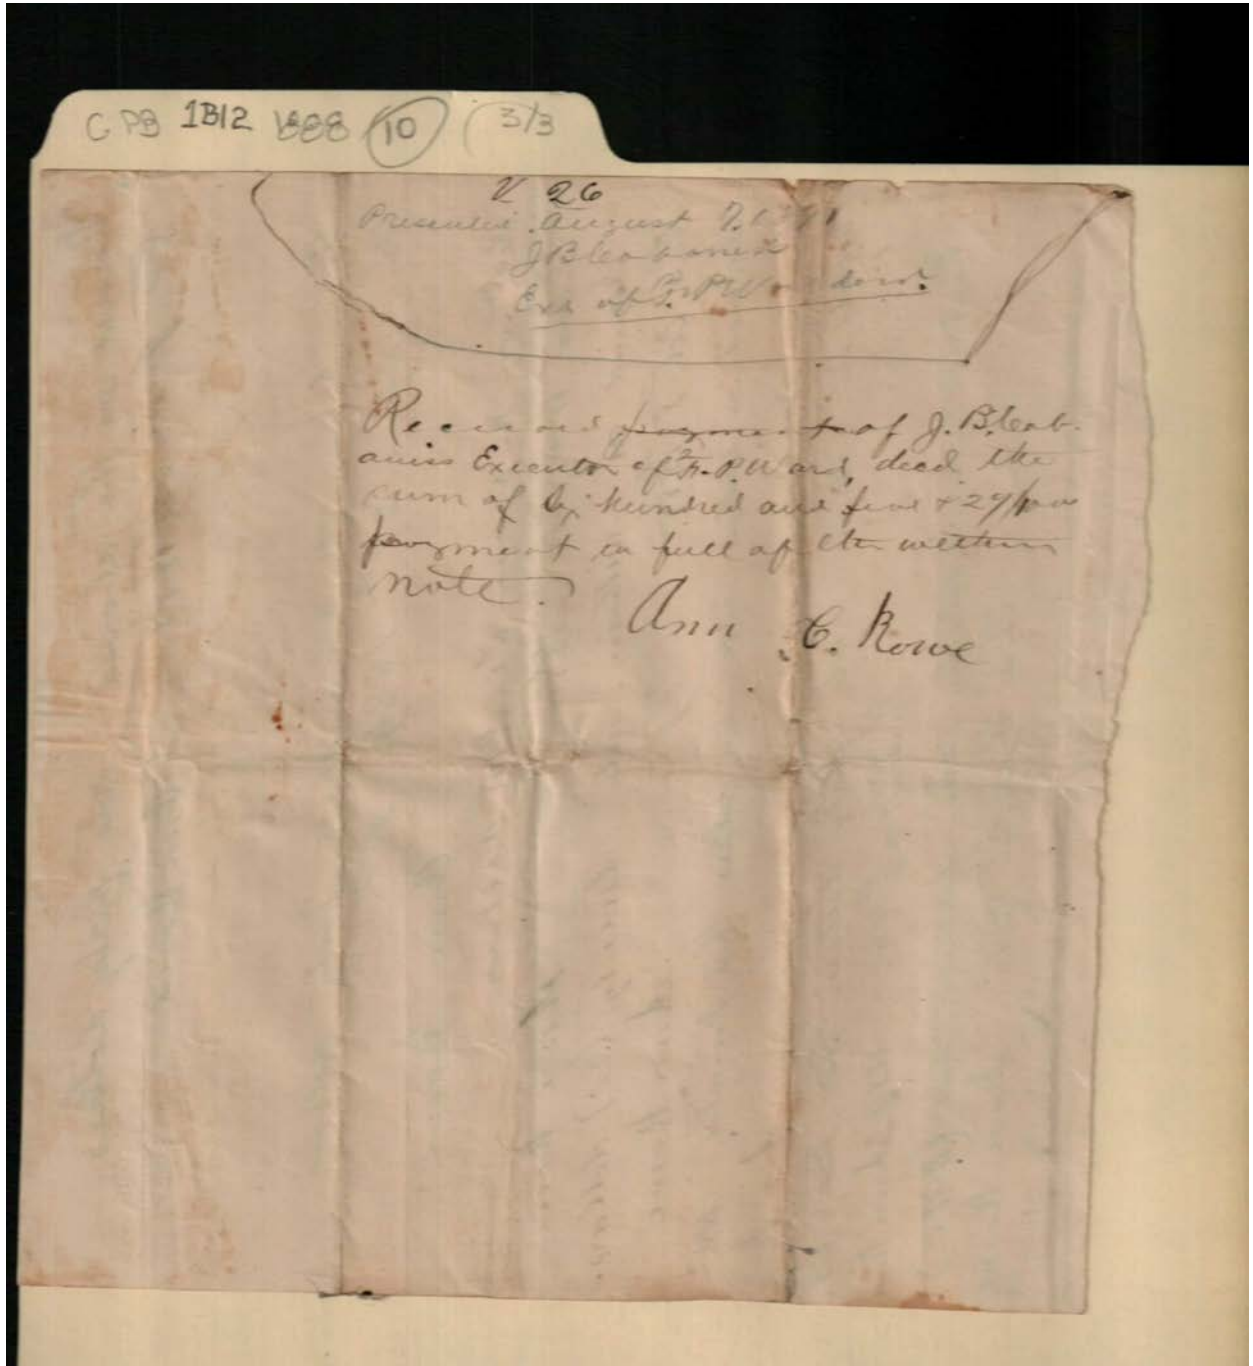 CPB 1B12 1888 10 3/3
V 26
Presented August 7
J B Cabaniss
Exr of T. P. Ward decd.
Received payment of J. B. Cab-
aniss Executor of P. Ward, decd the
sum of Six hundred and five & 29/100
payment in full of the within
note.
Ann C. Rowe